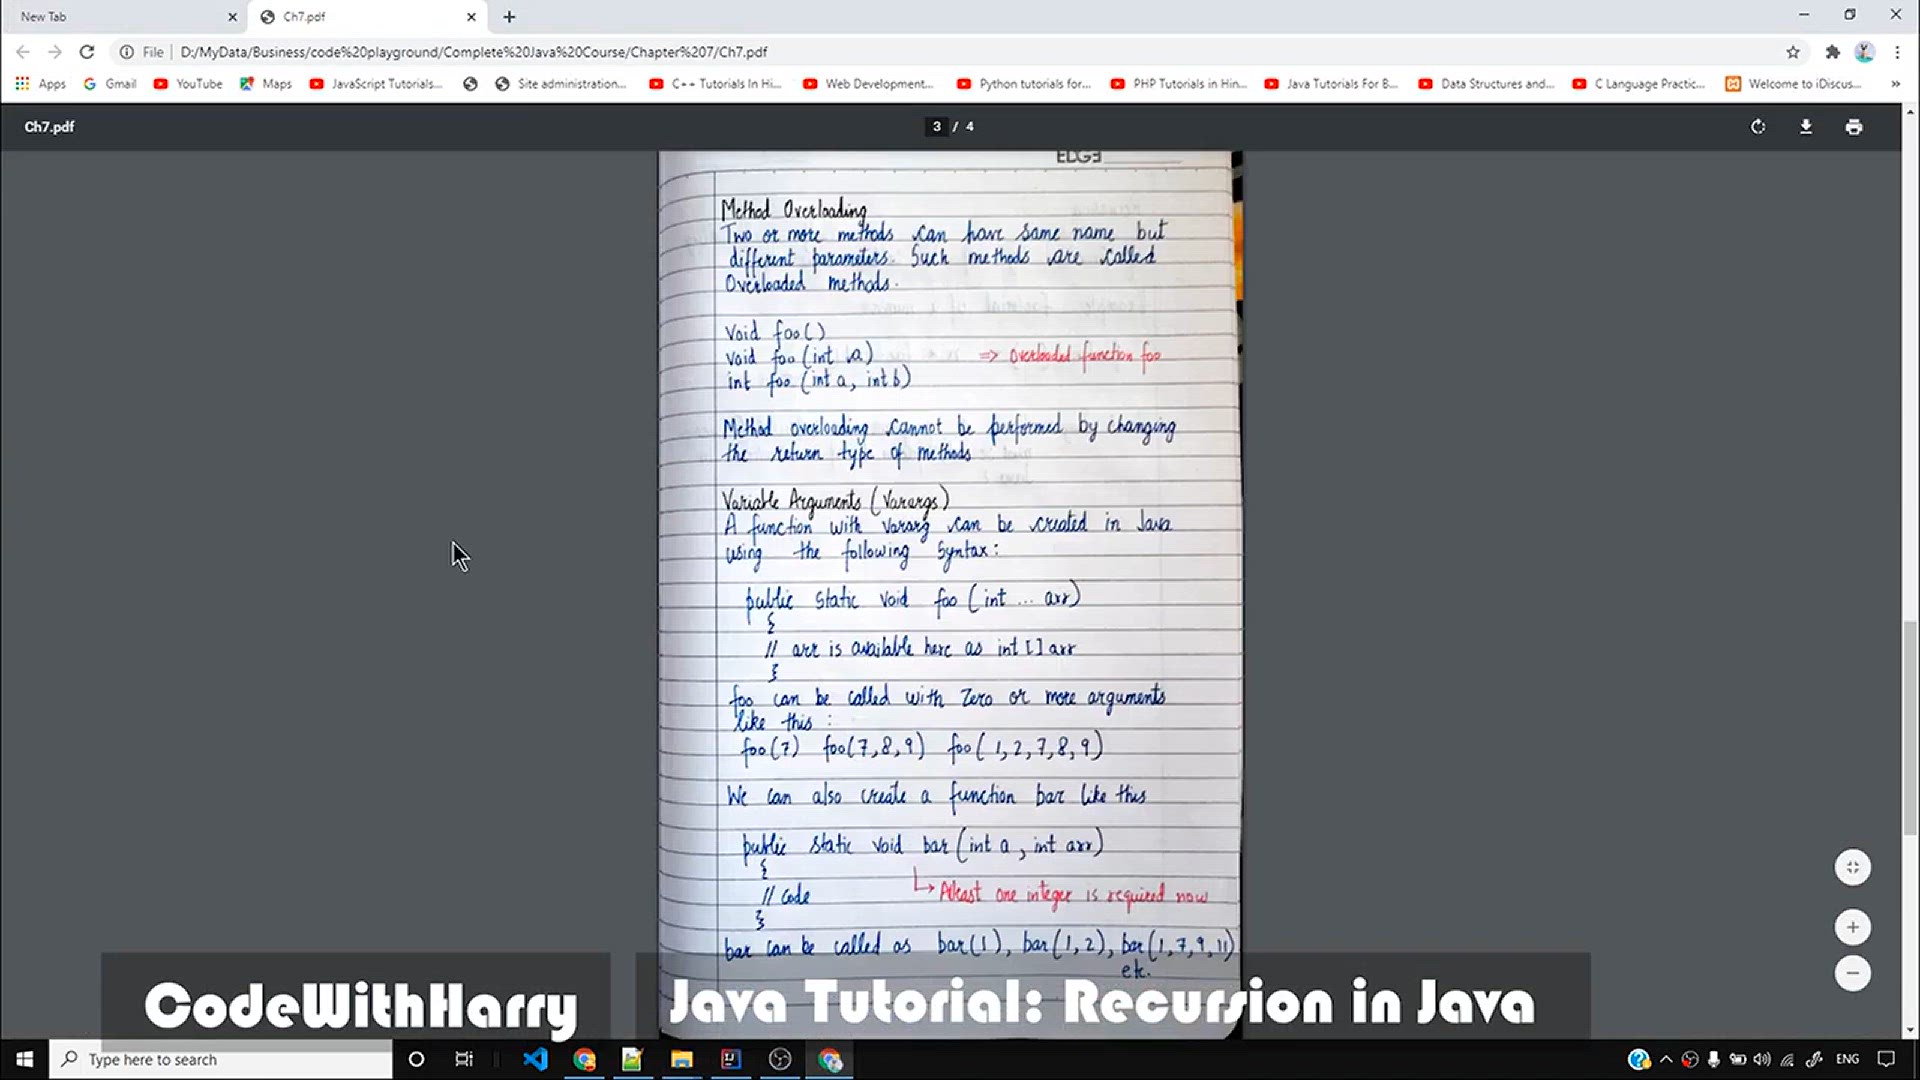 New Tab
Ch7.pdf
File | D:/MyData/Business/code%20playground/Complete%20Java%20Course/Chapter%207/Ch7.pdf
Apps Gmail YouTube Maps JavaScript Tutorials... Site administration... C++ Tutorials In Hi... Web Development... Python tutorials for... PHP Tutorials in Hin... Java Tutorials For B... Data Structures and... C Language Practic... Welcome to iDiscus... »
Ch7.pdf 3 / 4
Method Overloading
Two or more methods can have same name but
different parameters. Such methods are called
Overloaded methods.
Void foo()
void foo (int a) ⇒ Overloaded function foo
int foo (int a, int b)
Method overloading cannot be performed by changing
the return type of methods
Variable Arguments (Varargs)
A function with vararg can be created in Java
using the following syntax:
public static void foo (int ... arr)
{
// arr is available here as int [] arr
}
foo can be called with zero or more arguments
like this :
foo(7) foo(7,8,9) foo(1,2,7,8,9)
We can also create a function bar like this
public static void bar (int a, int arr)
{
// code ↳ Atleast one integer is required now
}
bar can be called as bar(1), bar(1,2), bar(1,7,9,11)
etc.
CodeWithHarry
Java Tutorial: Recursion in Java
Type here to search
ENG